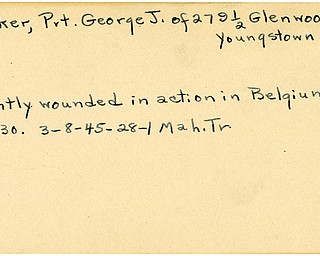 ker, Prt. George J. of 279 1/2 Glenwoo
Youngstown
ntly wounded in action in Belgium
30. 3-8-45-28-1 Mah. Tr.